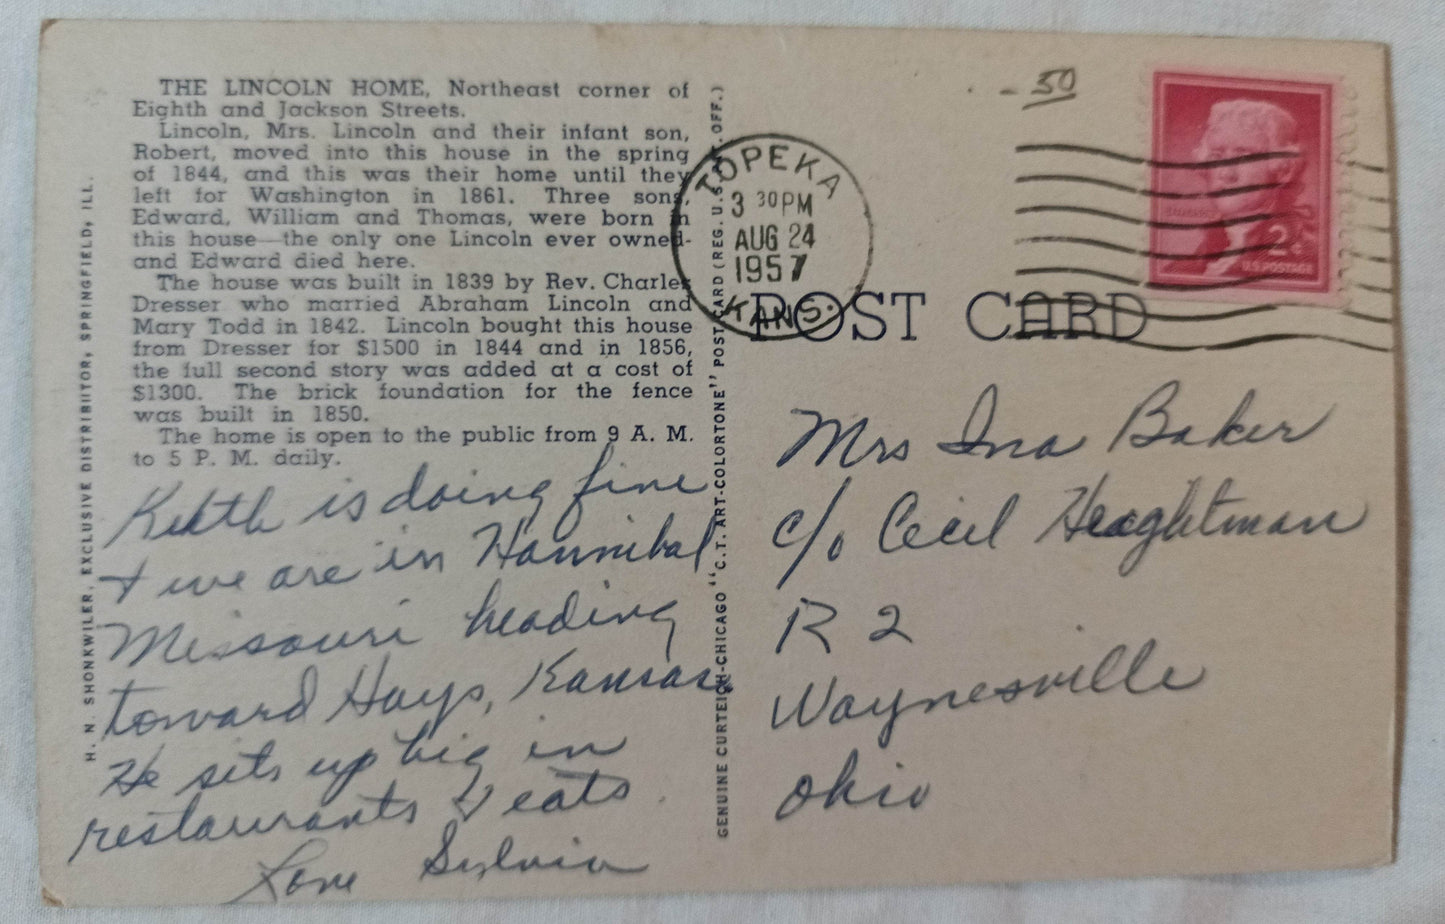 THE LINCOLN HOME, Northeast corner of
Eighth and Jackson Streets.
Lincoln, Mrs. Lincoln and their infant son,
Robert, moved into this house in the spring
of 1844, and this was their home until they
left for Washington in 1861. Three sons,
Edward, William and Thomas, were born in
this house—the only one Lincoln ever owned-
and Edward died here.
The house was built in 1839 by Rev. Charles
Dresser who married Abraham Lincoln and
Mary Todd in 1842. Lincoln bought this house
from Dresser for $1500 in 1844 and in 1856,
the full second story was added at a cost of
$1300. The brick foundation for the fence
was built in 1850.
The home is open to the public from 9 A. M.
to 5 P. M. daily.
H. N. SHONKWILER, EXCLUSIVE DISTRIBUTOR, SPRINGFIELD, ILL.
Keith is doing fine
+ we are in Hannibal
Missouri heading
toward Hays, Kansas.
He sits up big in
restaurants & eats
Love Sylvia
GENUINE CURTEICH-CHICAGO "C.T. ART-COLORTONE" POST CARD (REG. U.S. PAT. OFF.)
TOPEKA
3 30 PM
AUG 24
1957
KANS.
50
2¢
U.S. POSTAGE
POST CARD
Mrs Ina Baker
c/o Cecil
R 2
Waynesville
Ohio